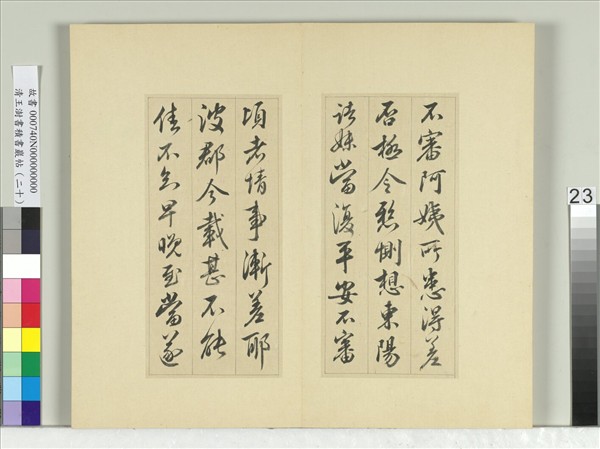 不審阿姨所患得差
否極令愁惻想東陽
諸妹當復平安不審
頃者情事漸差耶
波郡今載甚不能
佳不知早晚至當遂
故書 000740N000000000
清王澍書積書巖帖(二十)
23